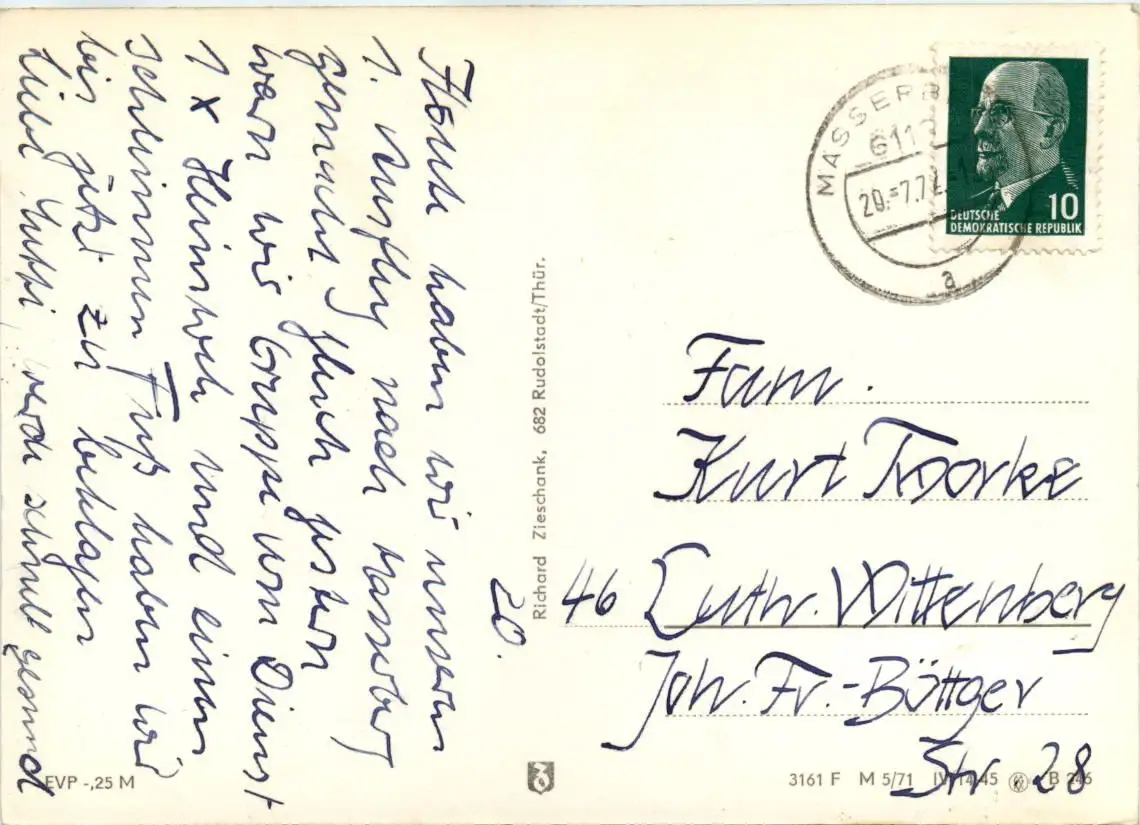 20.
Heute haben wir unseren
1. Ausflug nach Masserb.
gemacht, gleich gestern
waren wir Gruppe vom Dienst
1 x Heimweh und einen
schlimmen Fuß haben wir
bis jetzt zu beklagen
Liebe Mutti, werde schnell gesund
EVP -,25 M
Richard Zieschank, 682 Rudolstadt/Thür.
MASSERB
611
20.-7.72.-1
a
10
DEUTSCHE
DEMOKRATISCHE REPUBLIK
Fam.
Kurt
46 Luth. Wittenberg
Joh. Fr.-Böttger
Str. 28
3161 F M 5/71 IV/14/45 B 246